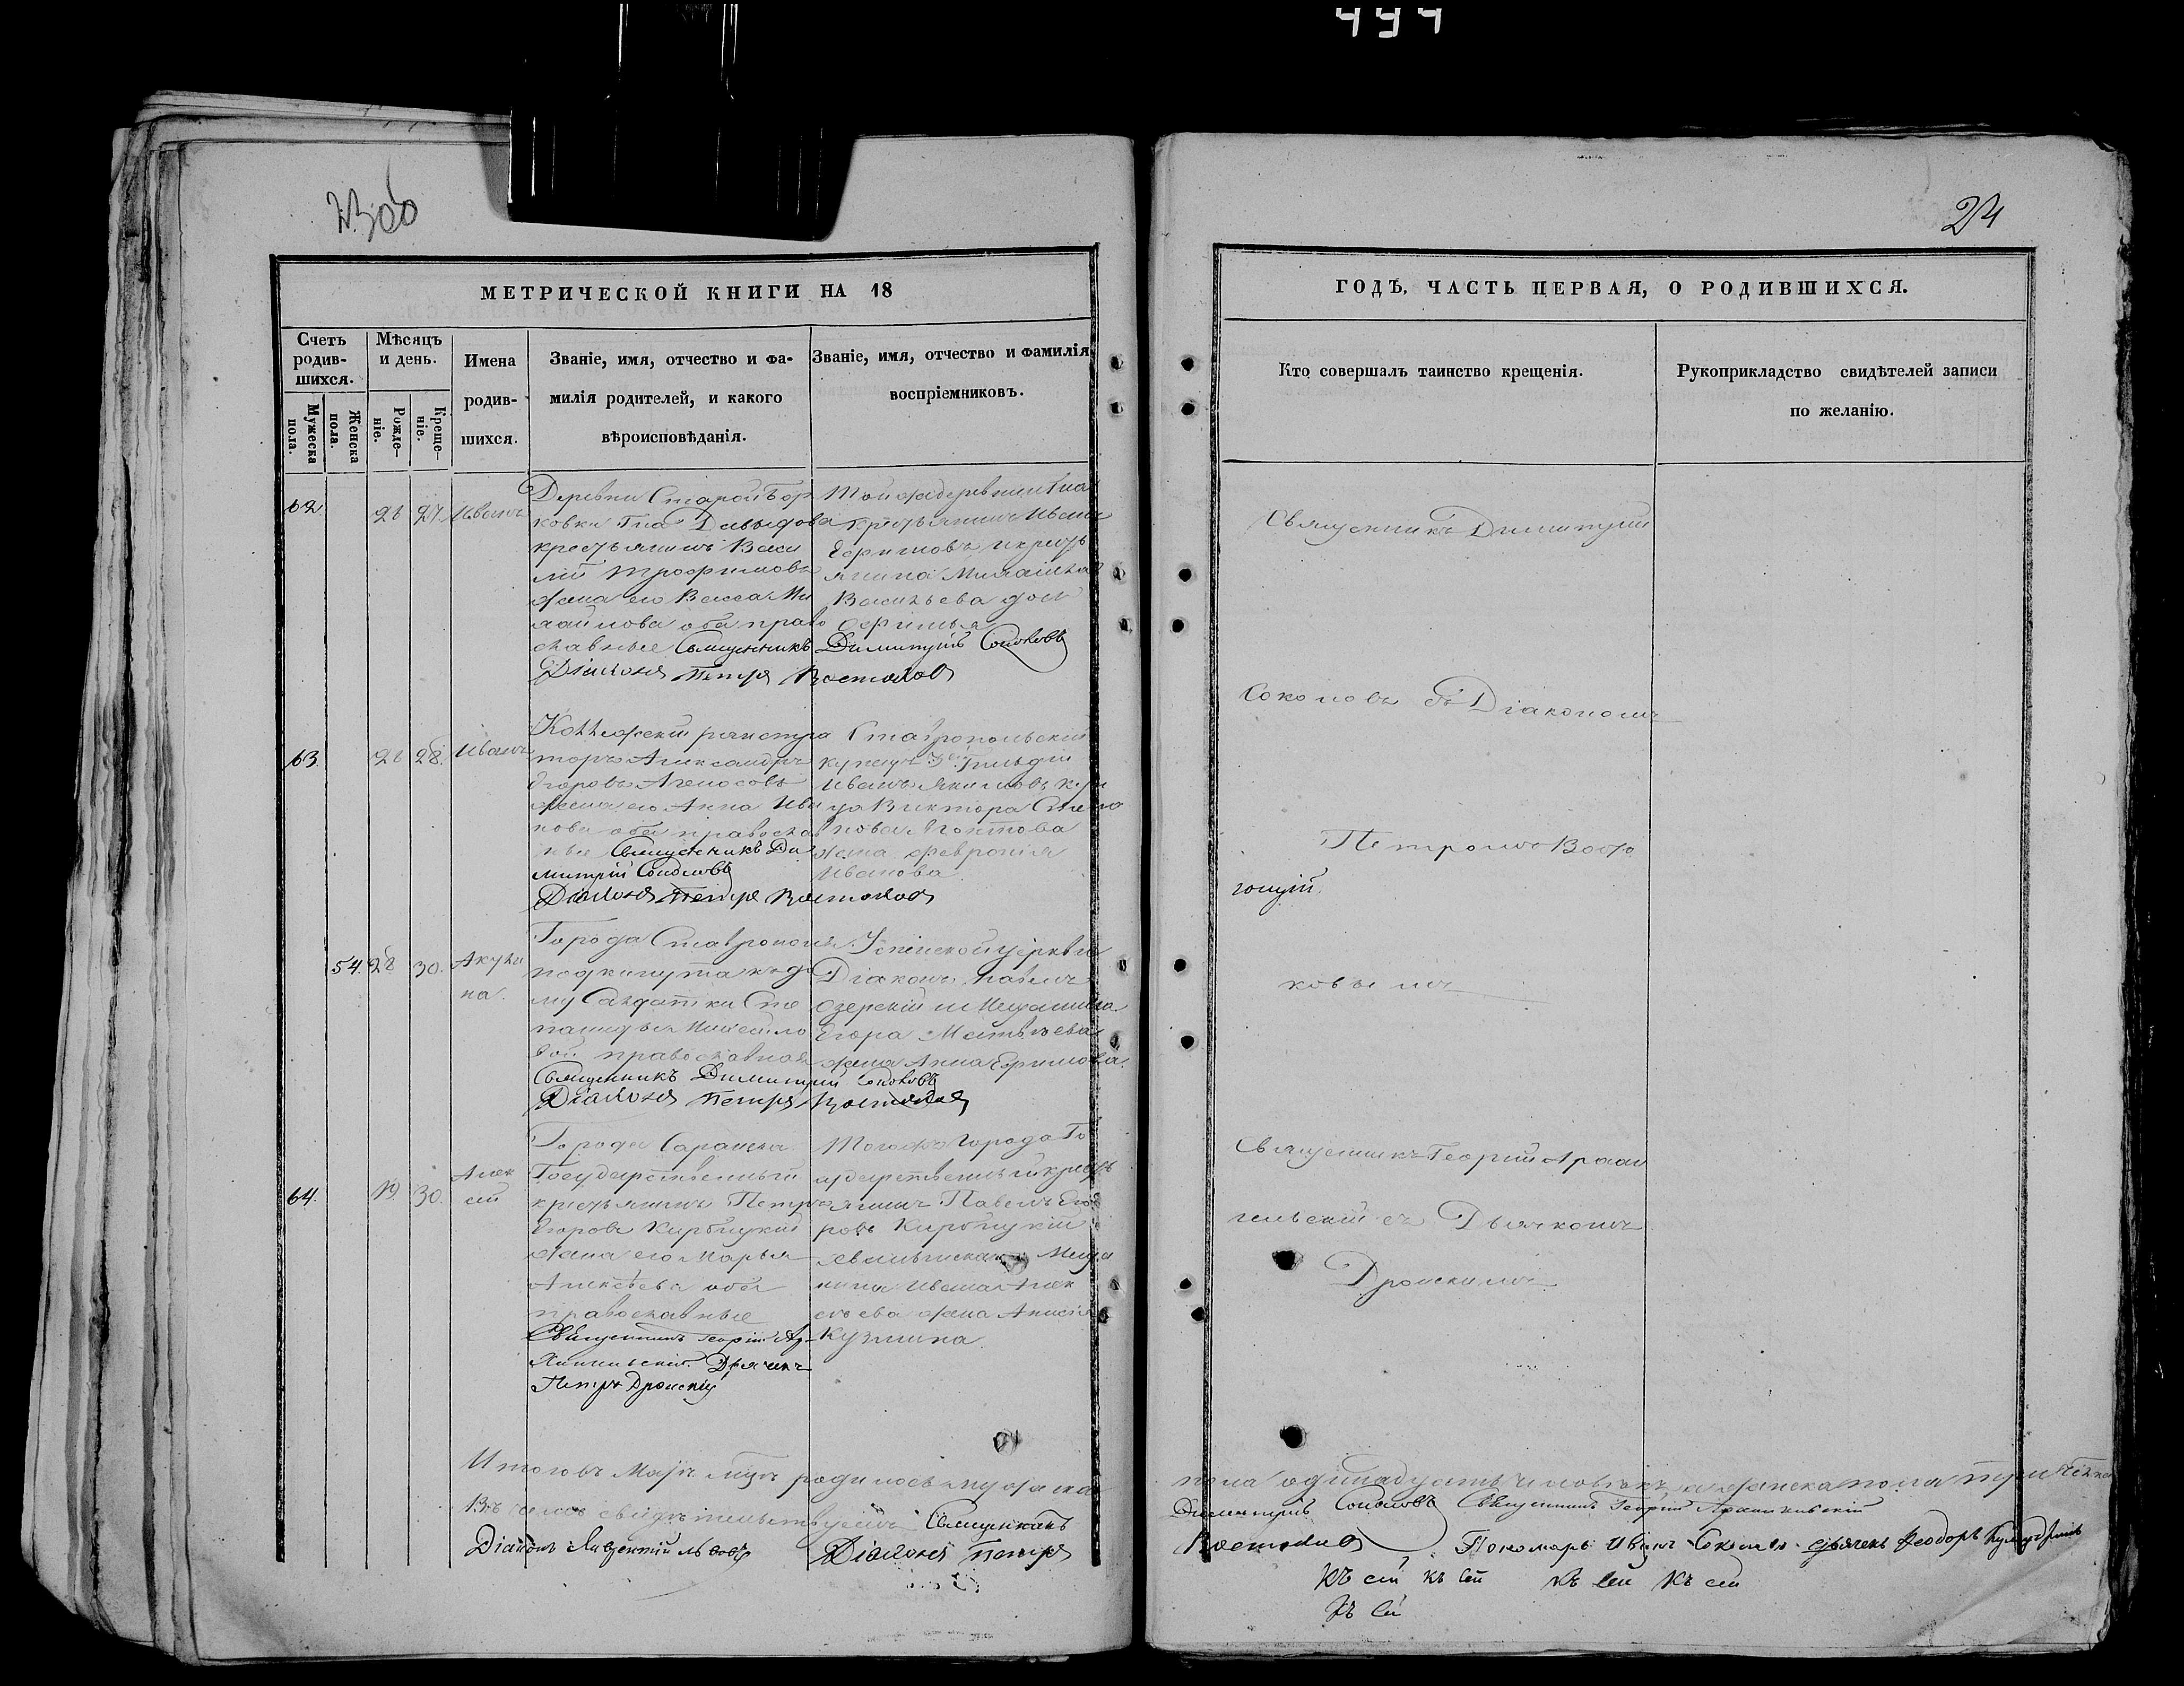 494
23 об
24
МЕТРИЧЕСКОЙ КНИГИ НА 18
ГОДѢ, ЧАСТЬ ПЕРВАЯ, О РОДИВШИХСЯ.
Счетъ родив-шихся.
Мужеска пола.
Женска пола.
Мѣсяцъ и день.
Рожде-ніе.
Креще-ніе.
Имена
родив-
шихся.
Званіе, имя, отчество и фа-
милія родителей, и какого
вѣроисповѣданія.
Званіе, имя, отчество и фамилія
воспріемниковъ.
Кто совершалъ таинство крещенія.
Рукоприкладство свидѣтелей записи
по желанію.
62
26
27
Иванъ
Деревни Старой Бор
ковки Гна Давыдова
крестьянинъ Васи
лій Трофимовъ
жена его Васса Ми
хайлова оба право
славные Священникъ Димитрій Соколовъ
Діаконъ Петръ Востоков
Той же деревни Гна
крестьянинъ Иванъ
Ефимовъ и крестъ
янина Михаила
Васильева дочь
Ефимья
Священникъ Димитрій
63.
26
28.
Иванъ
Коллежскій регистра
торъ Александръ
Егоровъ
жена его Анна Ива
нова оба православ
ные Священникъ Ди
митрій Соколовъ
Діаконъ Петръ Востоков
Ставропольскій
купецъ 3ей Гильдіи
Иванъ Якимовъ куп
ца Виктора Степа
нова
жена Февронія
Иванова.
Соколовъ съ Діакономъ
Петромъ Восто
54.
28
30.
Акули
на.
Города Ставрополя
подкинута къ до
му Салдатки Сте
паниды Михайло
вой православная
Священникъ Димитрій Соколовъ
Діаконъ Петръ Востоков
Успенской церкви
Діаконъ Павелъ
Озерскій и Мещанина
Егора Матвѣева
жена Анна Ефимова.
ковымъ
64.
30.
Алек
сѣй
Города Саранска
Государственный
крестьянинъ Петръ
Егоровъ
жена его Марья
Алексѣева оба
православные
Священникъ Георгій Ар-
хангельскій Дьячекъ
Петръ
Того же Города Го
сударственный крестъ
янинъ Павелъ Его
ровъ
Меща
нина Ивана Алек
сѣева жена Анисья
Кузмина.
Священникъ Георгій Архан
гельскій съ Дьячкомъ
Итого въ Маѣ мцѣ родилось мужеска
пола одинадцать человѣкъ, а женска пола три
Въ чемъ свидѣтельствуемъ Священникъ
Димитрій Соколовъ Священникъ Георгій Архангельскій
Діаконъ
Діаконъ Петръ
Востоков
Пономарь Иванъ Соколовъ дьячекъ Феодоръ
Къ сей къ сей Къ сей Къ сей
Къ сей